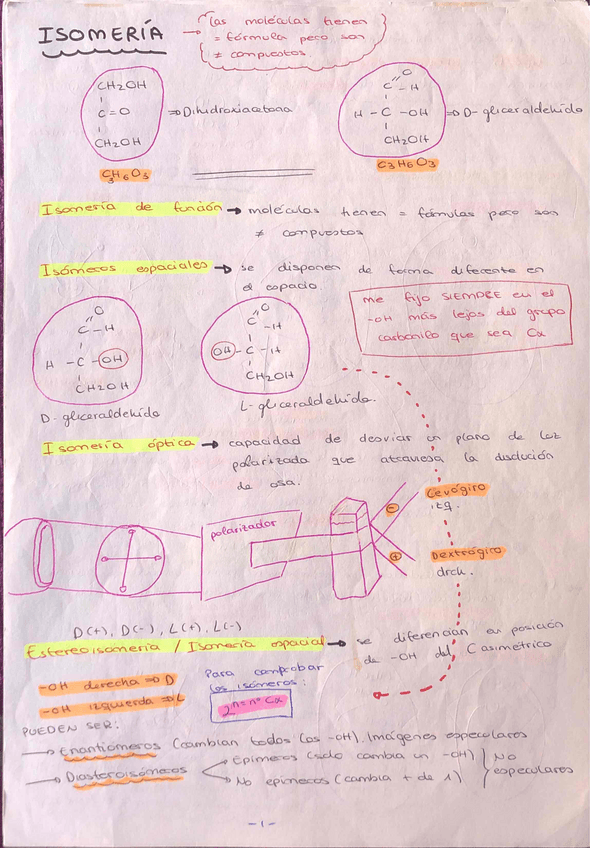 ISOMERÍA → Las moléculas tienen
= fórmula pero son
≠ compuestos.
CH2OH
C=O
CH2OH
⇒ Dihidroxiacetona
C3H6O3
O
C-H
H-C-OH
CH2OH
⇒ D-gliceraldehído
C3H6O3
Isomería de función → moléculas tienen = fórmulas pero son
≠ compuestos
Isómeros espaciales → se disponen de forma diferente en
el espacio.
O
C-H
H-C-OH
CH2OH
D-gliceraldehído
O
C-H
OH-C-H
CH2OH
L-gliceraldehído.
me fijo SIEMPRE en el
-OH más lejos del grupo
carbonilo que sea Cα
Isomería óptica → capacidad de desviar un plano de luz
polarizada que atraviesa la disolución
de osa.
polarizador
-
Levógiro
izq.
+
Dextrógiro
drch.
D(+), D(-), L(+), L(-)
Estereoisomería / Isomería espacial → se diferencian en posición
de -OH del C asimétrico
-OH derecha ⇒ D
-OH izquierda ⇒ L
Para comprobar
los isómeros:
2^n=nº Cα
PUEDEN SER:
→ Enantiómeros (cambian todos los -OH). Imágenes especulares
→ Diasteroisómeros
Epímeros (solo cambia un -OH)
No epímeros (cambia + de 1)
No
especulares
-1-